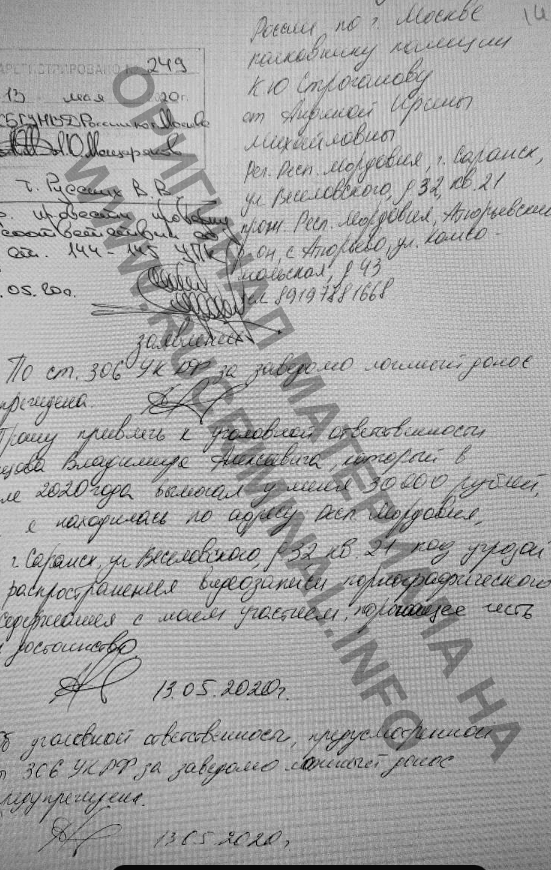 России по г. Москве
полковнику полиции
К.Ю Строганову
от Ирины
Михайловны
Рег. Респ. Мордовия, г. Саранск,
ул Веселовского, д 32, кв. 21
прож. Респ. Мордовия, Атюрьевский
р. он, с Атюрьево, ул. Комсо-
мольская, д 43
14
АРЕГИСТРИРОВАНО № 249
13 мая 20г.
России по г. Москве
г. Русских В.В.
провести проверку
соответствии со
ст. 144-145 УПК
.05.20г.
заявление
По ст. 306 УК РФ за заведомо ложный донос
преждена.
Прошу привлечь к уголовной ответственности
цова Владимира Алексеевича, который в
ле 2020 года вымогал у меня 30 000 рублей,
я находилась по адресу Респ Мордовия,
г. Саранск, ул Веселовского, д 32 кв. 21 под угрозой
распространения видеозаписи порнографического
содержания с моим участием, порочащее честь
и достоинство
13.05.2020г.
Об уголовной ответственности, предусмотренной
306 УК РФ за заведомо ложный донос
предупреждена.
13.05.2020г,
ОРИГИНАЛ МАТЕРИАЛА НА
WWW.RUCRIMINAL.INFO